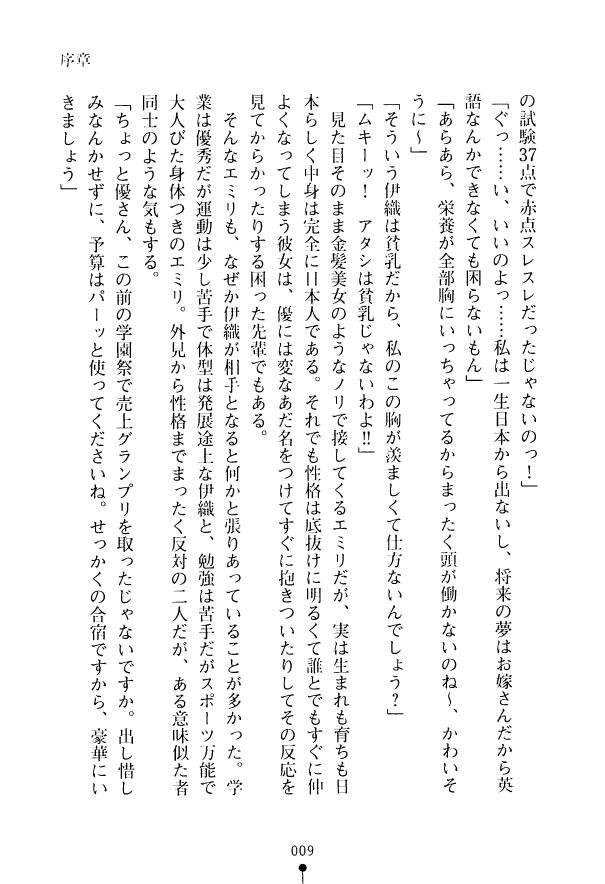 序章
の試験37点で赤点スレスレだったじゃないのっ！」
「ぐっ……い、いいのよっ……私は一生日本から出ないし、将来の夢はお嫁さんだから英
語なんかできなくても困らないもん」
「あらあら、栄養が全部胸にいっちゃってるからまったく頭が働かないのね〜、かわいそ
うに〜」
「そういう伊織は貧乳だから、私のこの胸が羨ましくて仕方ないんでしょう？」
「ムキーッ！　アタシは貧乳じゃないわよ!!」
見た目そのまま金髪美女のようなノリで接してくるエミリだが、実は生まれも育ちも日
本らしく中身は完全に日本人である。それでも性格は底抜けに明るくて誰とでもすぐに仲
よくなってしまう彼女は、優には変なあだ名をつけてすぐに抱きついたりしてその反応を
見てからかったりする困った先輩でもある。
そんなエミリも、なぜか伊織が相手となると何かと張りあっていることが多かった。学
業は優秀だが運動は少し苦手で体型は発展途上な伊織と、勉強は苦手だがスポーツ万能で
大人びた身体つきのエミリ。外見から性格までまったく反対の二人だが、ある意味似た者
同士のような気もする。
「ちょっと優さん、この前の学園祭で売上グランプリを取ったじゃないですか。出し惜し
みなんかせずに、予算はパーッと使ってくださいね。せっかくの合宿ですから、豪華にい
きましょう」
009